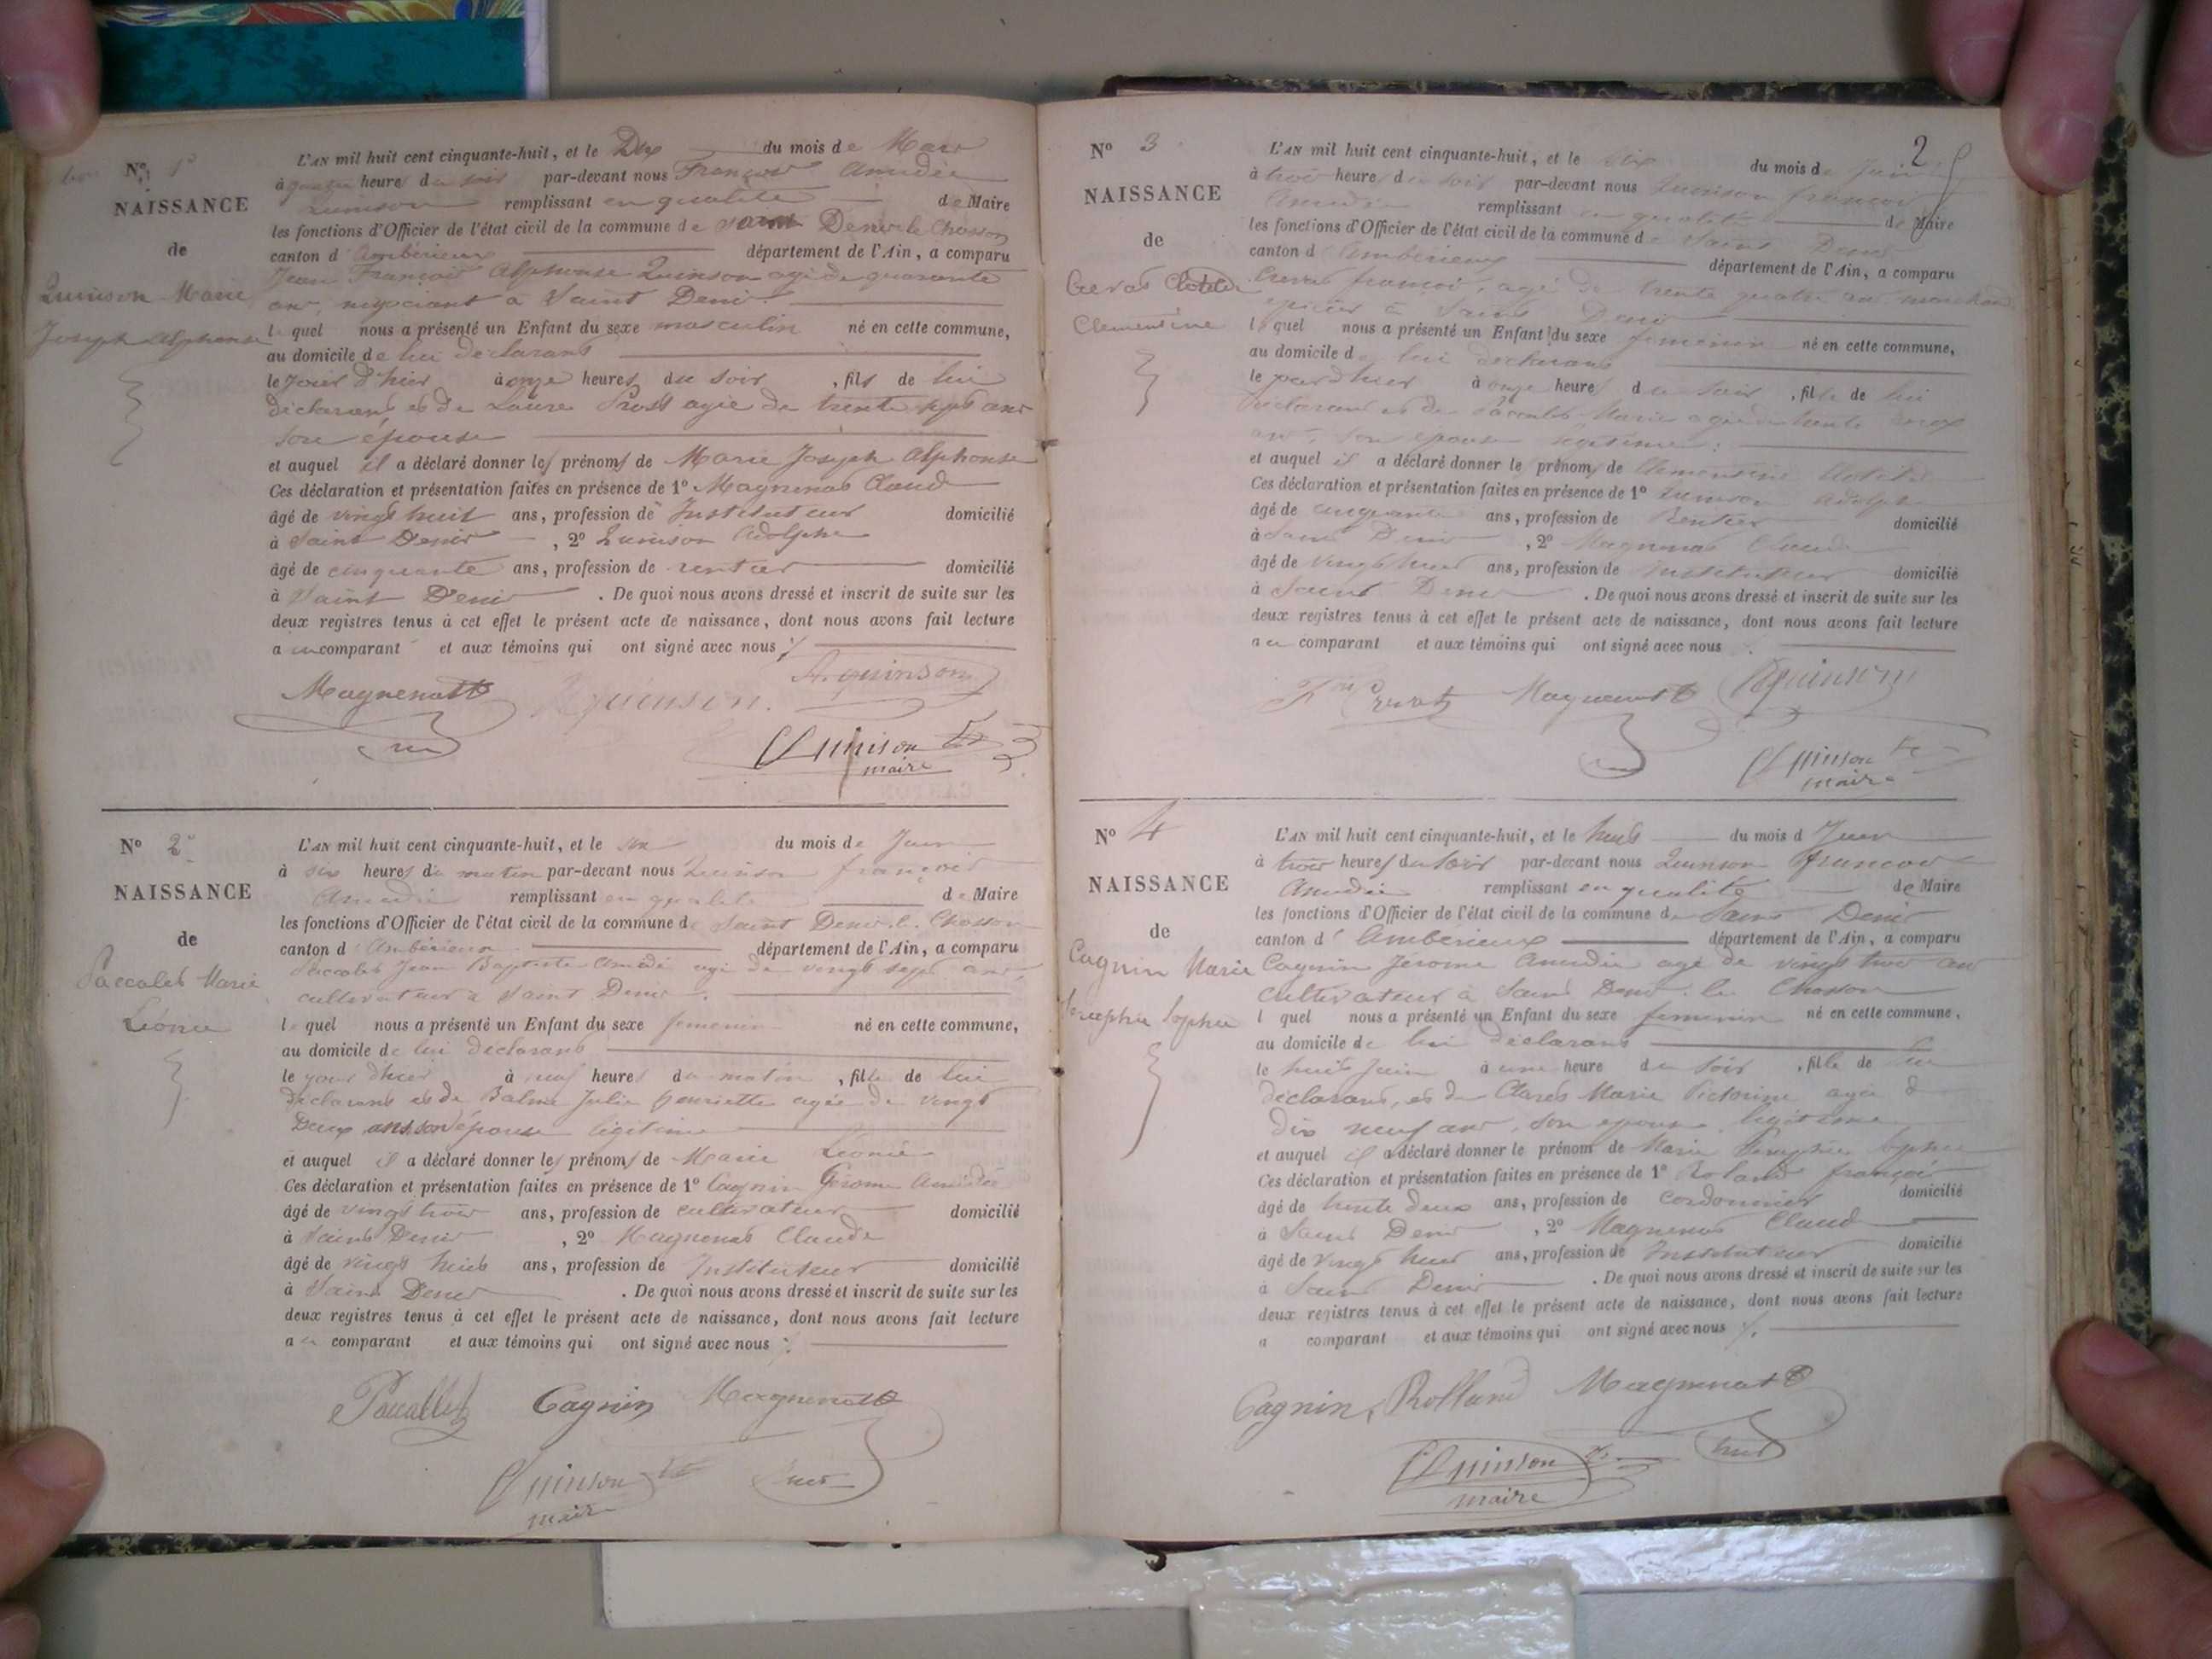 N° 1°
NAISSANCE
de
Quinson Marie
Joseph Alphonse
L'AN mil huit cent cinquante-huit, et le Dix du mois de Mars
à quatre heures du soir par-devant nous François Amédée
Quinson remplissant en qualité de Maire
les fonctions d'Officier de l'état civil de la commune de Saint Denis le Chosson
canton d'Ambérieux département de l'Ain, a comparu
Jean François Alphonse Quinson agé de quarante
ans, négociant à Saint Denis
lequel nous a présenté un Enfant du sexe masculin né en cette commune,
au domicile de lui déclarant
le jour d'hier à onze heures du soir, fils de lui
déclarant et de Laure Prost agée de trente sept ans
son épouse
et auquel il a déclaré donner les prénoms de Marie Joseph Alphonse
Ces déclaration et présentation faites en présence de 1° Magnenat Claude
âgé de vingt huit ans, profession de Instituteur domicilié
à Saint Denis, 2° Quinson Adolphe
âgé de cinquante ans, profession de rentier domicilié
à Saint Denis. De quoi nous avons dressé et inscrit de suite sur les
deux registres tenus à cet effet le présent acte de naissance, dont nous avons fait lecture
au comparant et aux témoins qui ont signé avec nous
Magnenat A. quinson
quinson.
Quinson
maire
N° 2°
NAISSANCE
de
Paccalet Marie
Léonie
L'AN mil huit cent cinquante-huit, et le six du mois de Juin
à six heures du matin par-devant nous Quinson françois
Amédée remplissant en qualité de Maire
les fonctions d'Officier de l'état civil de la commune de Saint Denis le Chosson
canton d'Ambérieux département de l'Ain, a comparu
Paccalet Jean Baptiste Amédé agé de vingt sept ans
cultivateur à Saint Denis.
lequel nous a présenté un Enfant du sexe femenin né en cette commune,
au domicile de lui déclarant
le jour d'hier à neuf heures du matin, fille de lui
déclarant et de Balme Julie henriette agée de vingt
Deux ans, son épouse légitime
et auquel il a déclaré donner les prénoms de Marie Léonie
Ces déclaration et présentation faites en présence de 1° Cagnin Jérome Amédée
âgé de vingt trois ans, profession de cultivateur domicilié
à Saint Denis, 2° Magnenat Claude
âgé de vingt huit ans, profession de Instituteur domicilié
à Saint Denis. De quoi nous avons dressé et inscrit de suite sur les
deux registres tenus à cet effet le présent acte de naissance, dont nous avons fait lecture
au comparant et aux témoins qui ont signé avec nous
Paccallet Cagnin Magnenat
Quinson
maire
2
N° 3
NAISSANCE
de
Clotilde
Clementine
L'AN mil huit cent cinquante-huit, et le six du mois de Juin
à trois heures du soir par-devant nous Quinson françois
Amédée remplissant en qualité de Maire
les fonctions d'Officier de l'état civil de la commune de Saint Denis
canton d'Ambérieux département de l'Ain, a comparu
françois, agé de trente quatre ans marchand
épicier à Saint Denis
lequel nous a présenté un Enfant du sexe femenin né en cette commune,
au domicile de lui déclarant
le jour d'hier à onze heures du soir, fille de lui
déclarant et de Paccalet Marie agée de trente
ans, son épouse légitime
et auquel il a déclaré donner le prénom de Clementine Clotilde
Ces déclaration et présentation faites en présence de 1° Quinson Adolphe
âgé de cinquante ans, profession de Rentier domicilié
à Saint Denis, 2° Magnenat Claude
âgé de vingt huit ans, profession de Instituteur domicilié
à Saint Denis. De quoi nous avons dressé et inscrit de suite sur les
deux registres tenus à cet effet le présent acte de naissance, dont nous avons fait lecture
au comparant et aux témoins qui ont signé avec nous
Magnenat Quinson
Quinson
maire
N° 4
NAISSANCE
de
Cagnin Marie
Sophie
L'AN mil huit cent cinquante-huit, et le huit du mois d Juin
à trois heures du soir par-devant nous Quinson françois
Amédée remplissant en qualité de Maire
les fonctions d'Officier de l'état civil de la commune de Saint Denis
canton d'Ambérieux département de l'Ain, a comparu
Cagnin Jérome Amédée agé de vingt trois ans
cultivateur à Saint Denis le Chosson
l quel nous a présenté un Enfant du sexe femenin né en cette commune,
au domicile de lui déclarant
le huit Juin à une heure du soir, fille de lui
déclarant, et de Claret Marie Victorine agée de
dix neuf ans, son épouse légitime
et auquel il a déclaré donner le prénom de Marie Sophie
Ces déclaration et présentation faites en présence de 1° Roland françois
âgé de trente deux ans, profession de cordonnier domicilié
à Saint Denis, 2° Magnenat Claude
âgé de vingt huit ans, profession de Instituteur domicilié
à Saint Denis. De quoi nous avons dressé et inscrit de suite sur les
deux registres tenus à cet effet le présent acte de naissance, dont nous avons fait lecture
a comparant et aux témoins qui ont signé avec nous
Cagnin, Rolland Magnenat
Quinson
maire